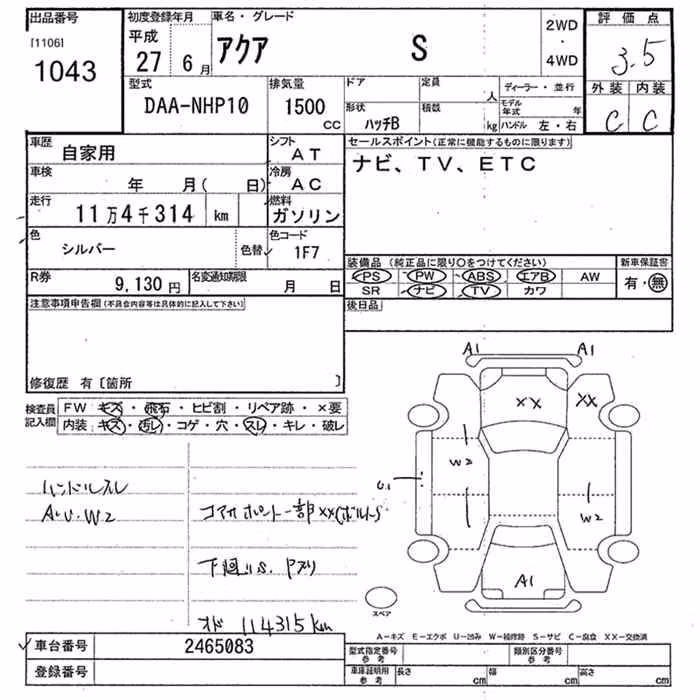 出品番号
[1106]
1043
初度登録年月
平成
27年6月
車名・グレード
アクア S
2WD
・
4WD
評価点
3.5
外装 内装
C C
型式
DAA-NHP10
排気量
1500
CC
ドア
定員
人
形状
ハッチB
積載
kg
ディーラー・並行
モデル年式 年
ハンドル 左・右
車歴
自家用
シフト
AT
車検
年 月( 日)
冷房
AC
走行
11万4千314 km
燃料
ガソリン
色
シルバー
色替
色コード
1F7
R券
9,130円
名変通知期限
月 日
セールスポイント(正常に機能するものに限ります)
ナビ、TV、ETC
装備品(純正品に限り○をつけてください)
新車保証書
PS PW ABS エアB AW
SR ナビ TV カワ
有・無
後日品
注意事項申告欄(不具合内容等は具体的に記入して下さい)
修復歴 有〔箇所 〕
検査員
記入欄
FW キズ・飛石・ヒビ割・リペア跡・×要
内装 キズ・汚レ・コゲ・穴・スレ・キレ・破レ
ハンドルスレ
AU.W2
コアサポート一部××(ボルト)
下廻りS.
オド 114315km
A1 A1
XX XX
W2
U1
W2
A1
スペア
A-キズ E-エクボ U-凹み W-補修跡 S-サビ C-腐食 XX-交換済
車台番号
2465083
登録番号
型式指定番号
参考
類別区分番号
参考
車庫証明用
参考
長さ cm 幅 cm 高さ cm